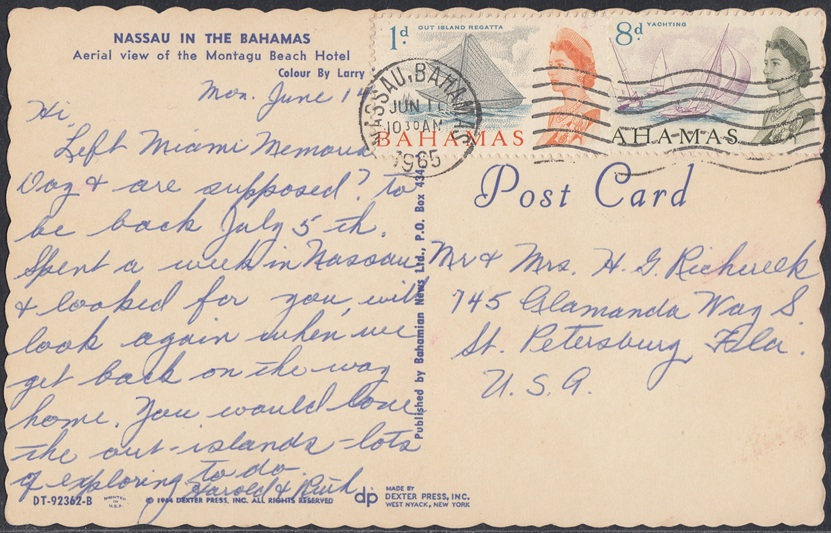 NASSAU IN THE BAHAMAS
Aerial view of the Montagu Beach Hotel
Colour By Larry
Mon. June 14
Hi,
Left Miami Memorial
Day & are supposed? to
be back July 5 th.
Spent a week in Nassau
& looked for you, will
look again when we
get back on the way
home. You would love
the out-islands-lots
of exploring to do.
Harold & Ruth
DT-92362-B
PRINTED
IN
U.S.A.
© 1964 DEXTER PRESS, INC. ALL RIGHTS RESERVED
dp
MADE BY
DEXTER PRESS, INC.
WEST NYACK, NEW YORK
Published by Bahamian News Ltd., P.O. Box 434
1d
OUT ISLAND REGATTA
BAHAMAS
8d
YACHTING
AHAMAS
NASSAU, BAHAMAS
JUN 1
1030AM
1965
Post Card
Mr & Mrs. H. G. Richcreek
745 Alamanda Way S.
St. Petersburg, Fla.
U.S.A.